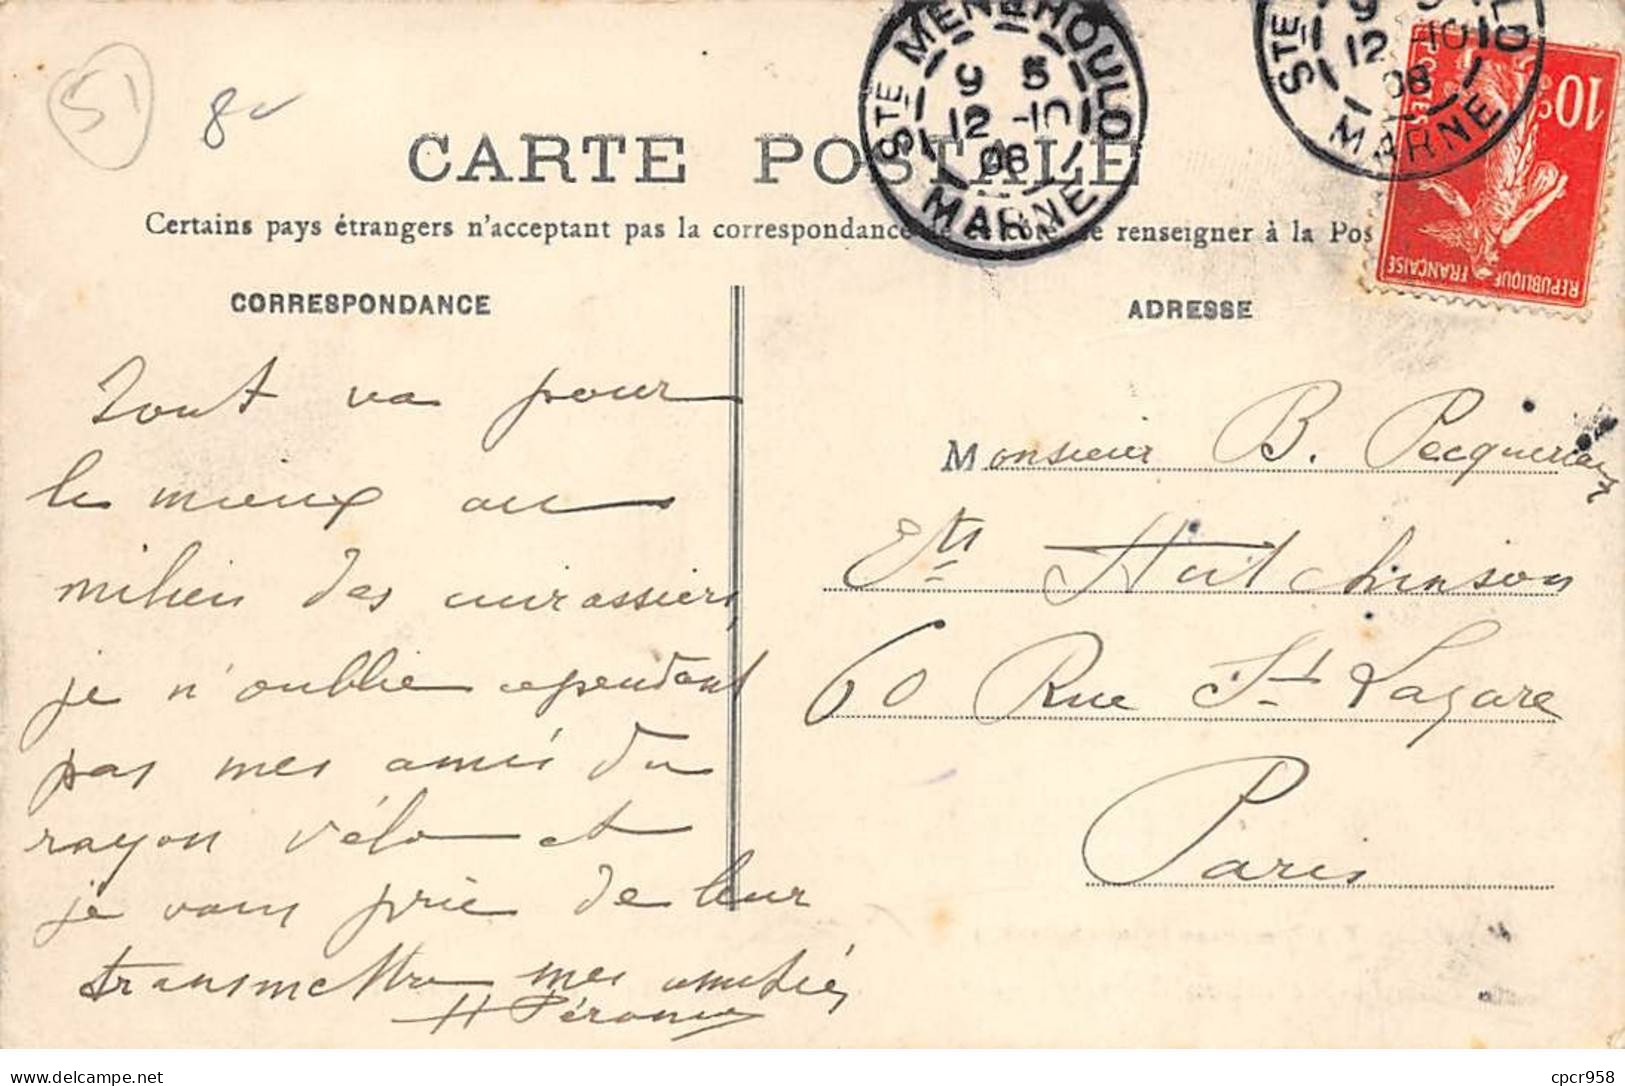 51
8
STE MENEHOULD
9 5
12 -10
08
MARNE
STE
9 5
12 -10
08
MARNE
10 c
POSTES
REPUBLIQUE FRANÇAISE
CARTE POSTALE
Certains pays étrangers n'acceptant pas la correspondance renseigner à la Pos
CORRESPONDANCE
ADRESSE
Tout va pour
le mieux au
milieu des cuirassiers,
je n'oublie cependant
pas mes amis du
rayon vélo et
je vous prie de leur
transmettre mes amitiés
Monsieur B. Pecqueriaux
Ets Hutchinson
60 Rue St Lazare
Paris
cpcr958